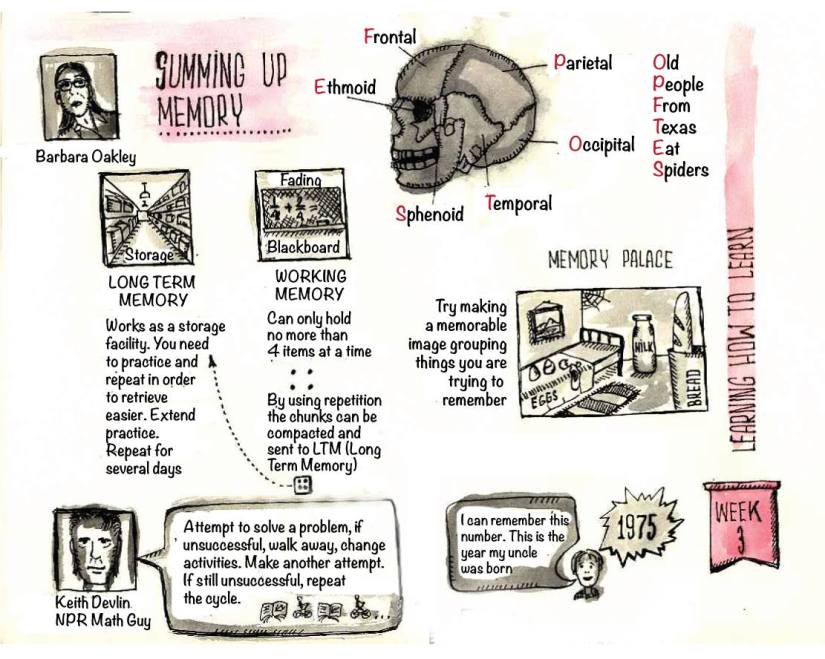 SUMMING UP
MEMORY
Barbara Oakley
Frontal
Ethmoid
Parietal
Occipital
Temporal
Sphenoid
Old
People
From
Texas
Eat
Spiders
Storage
LONG TERM
MEMORY
Works as a storage
facility. You need
to practice and
repeat in order
to retrieve
easier. Extend
practice.
Repeat for
several days
Fading
1/4 + 2/4 =
Blackboard
WORKING
MEMORY
Can only hold
no more than
4 items at a time
By using repetition
the chunks can be
compacted and
sent to LTM (Long
Term Memory)
MEMORY PALACE
Try making
a memorable
image grouping
things you are
trying to
remember
MILK
EGGS
BREAD
LEARNING HOW TO LEARN
Keith Devlin
NPR Math Guy
Attempt to solve a problem, if
unsuccessful, walk away, change
activities. Make another attempt.
If still unsuccessful, repeat
the cycle.
...
I can remember this
number. This is the
year my uncle
was born
1975
WEEK
3